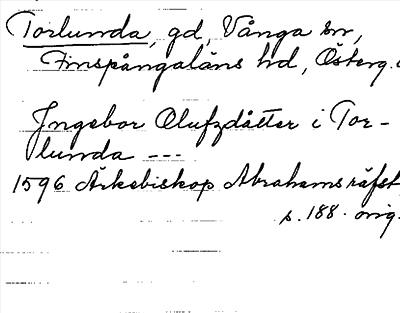 Torlunda, gd, Vånga sn,
Finspångaläns hd, Österg.
Ingebor Olufzdåtter i Tor-
lunda ---
1596 Ärkebiskop Abrahams räfst
s. 188. orig.